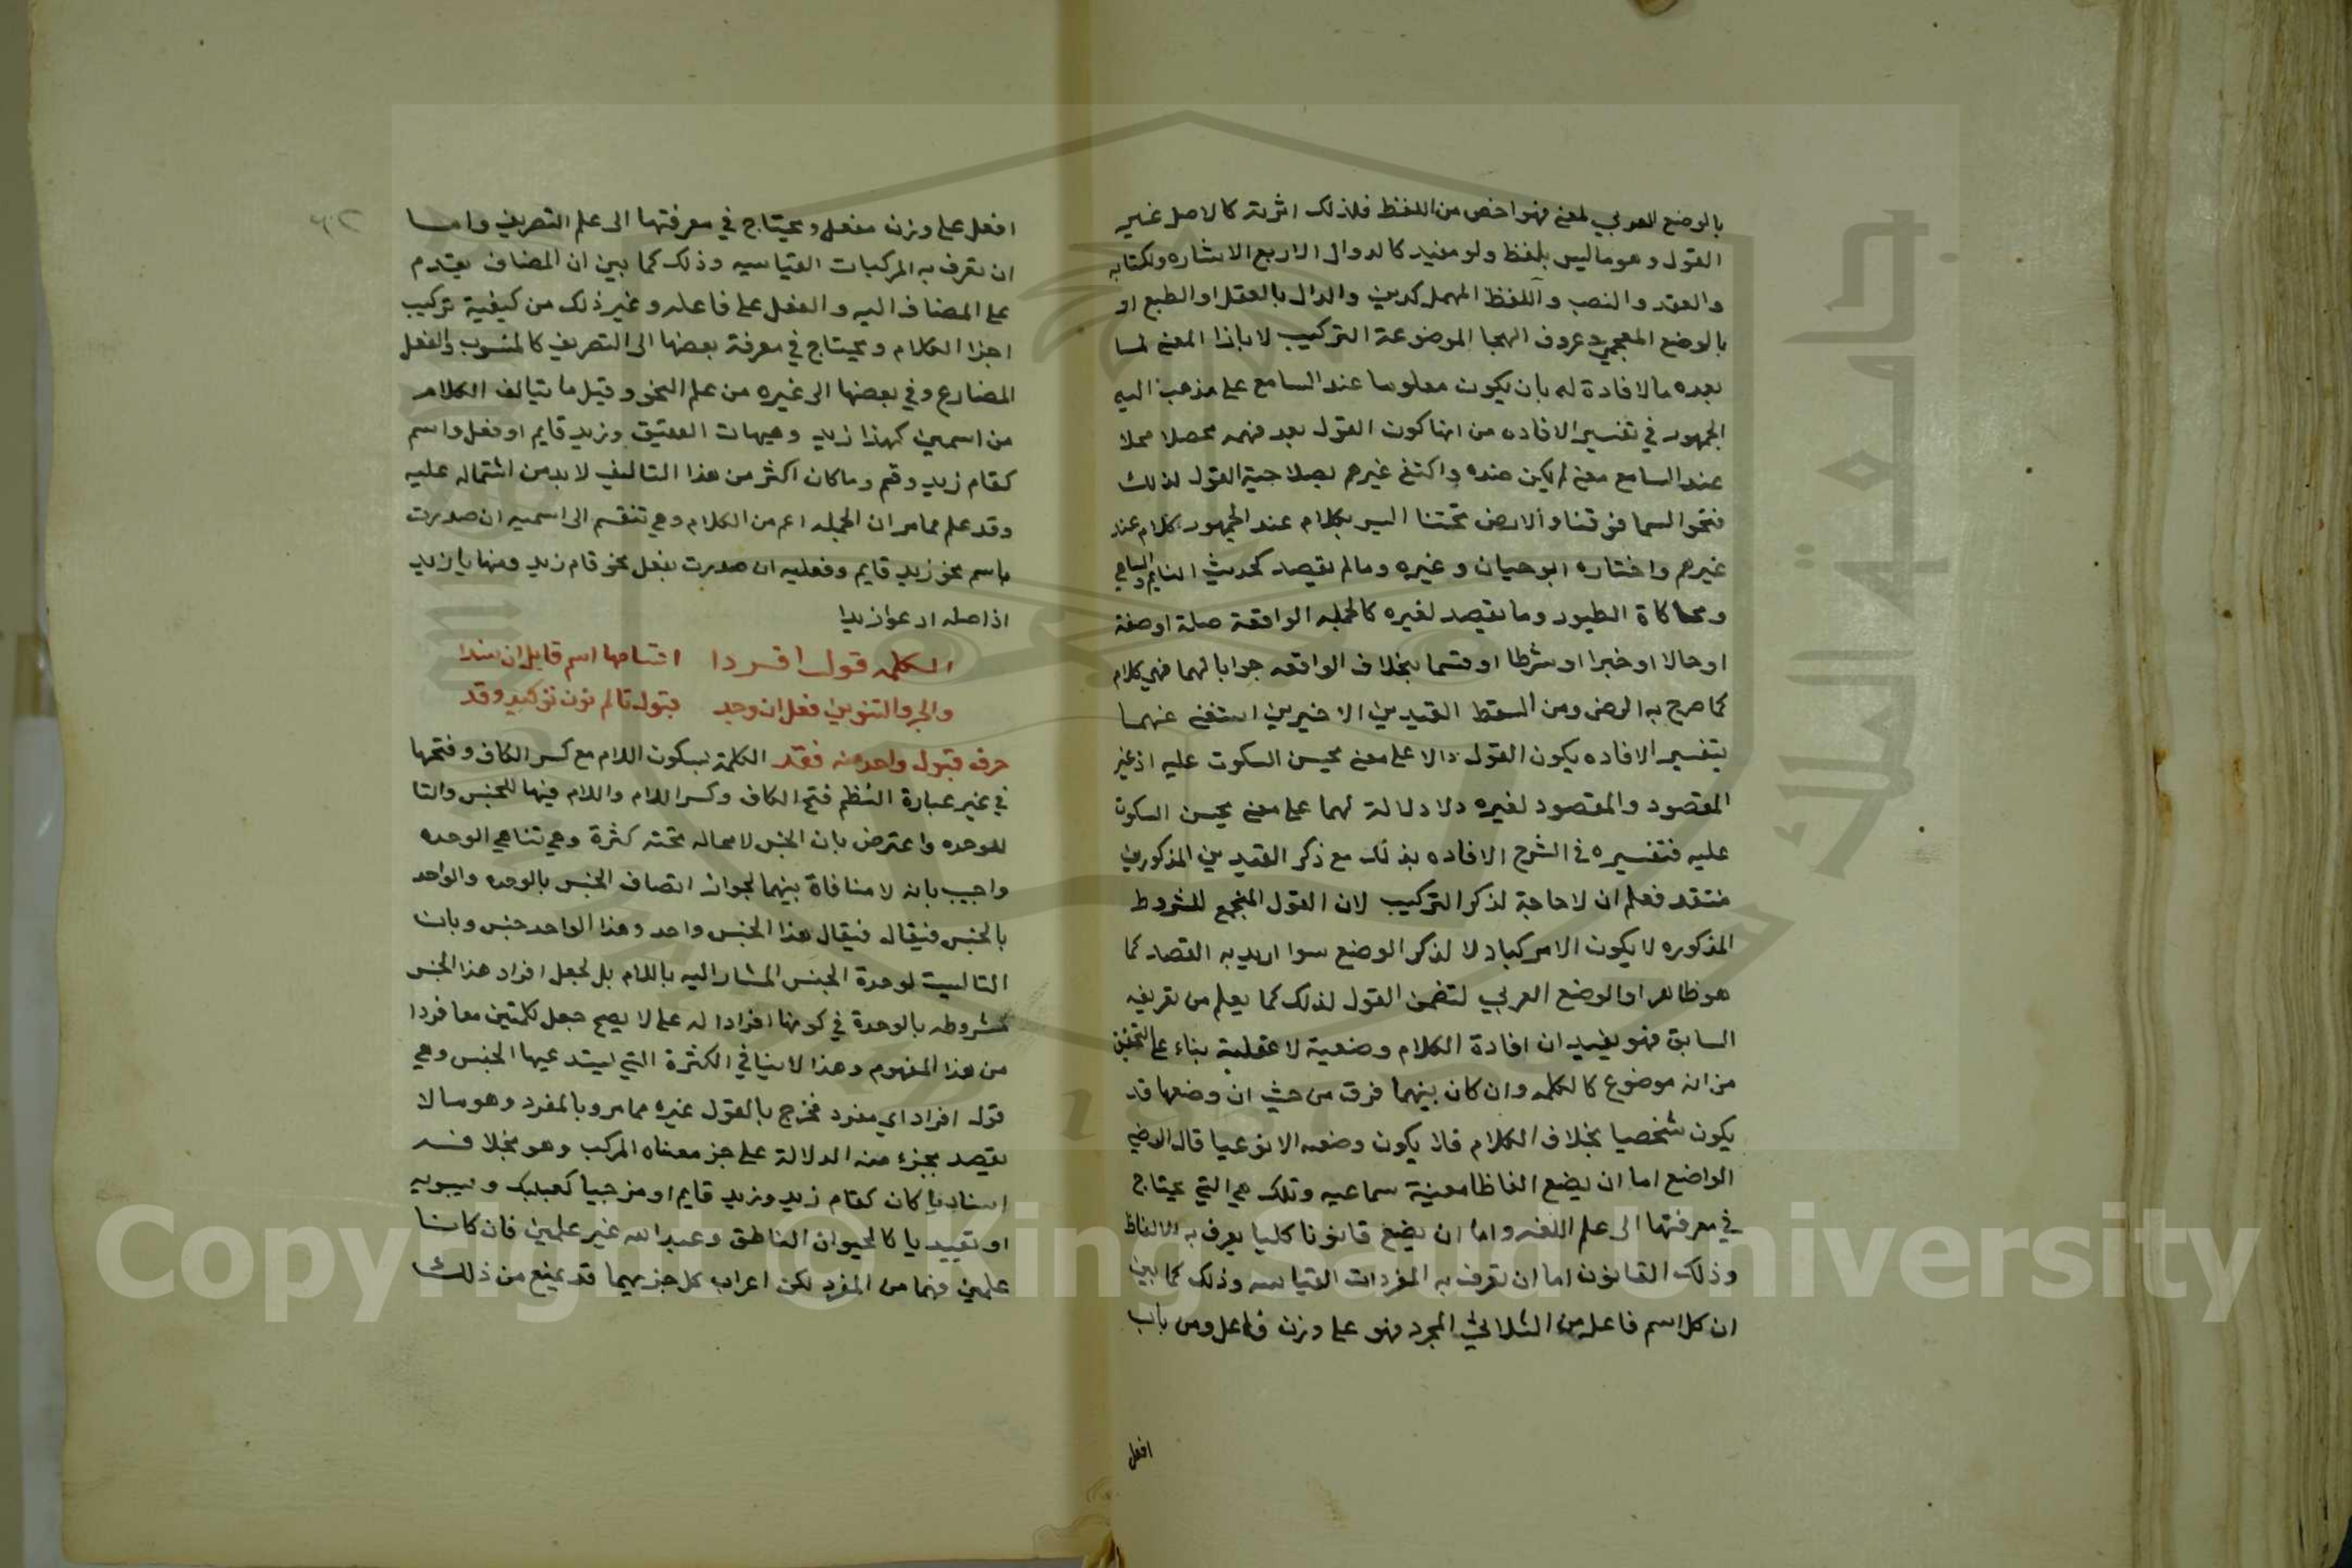 بالوضع العربي لمعنى فهو اخص من اللفظ فلذلك اثرته كالاصل غير
القول وهو ما ليس بلفظ ولو مفيد كالدوال الاربع الاشاره والكتابه
والعقد والنصب واللفظ المهمل كديز والدال بالعقل او الطبع او
بالوضع المعجمي وحروف الهجا الموضوعة التركيب لا بازا المعنى لما
بعده مالا فادة له بان يكون معلوما عند السامع على مذهب اليه
الجمهور في تفسير الافاده من انها كون القول بعد فهمه محصلا
عند السامع معنى لم يكن عنده واكتفى غيرهم بصلاحية القول لذلك
فنحو السما فوقنا والارض تحتنا ليس بكلام عند الجمهور كلام عند
غيرهم واختاره ابو حيان وغيره وما لم يقصد كحديث النايم والساهي
ومحاكاة الطيور وما يقصد لغيره كالجمله الواقعة صلة او صفة
او حالا او خبرا او شرطا او قسما بخلاف الواقعه جوابا لهما فهي كلام
كما صرح به الرضى ومن اسقط القيدين الاخيرين استغنى عنهما
بتفسير الافاده بكون القول دالا على معنى يحسن السكوت عليه اذ غير
المقصود والمقصود لغيره لا دلالة لهما على معنى يحسن السكوت
عليه فتفسيره في الشرح الافاده بذلك مع ذكر القيدين المذكورين
منتقد فعلم ان لا حاجة لذكر التركيب لان القول المنجمع للشروط
المذكوره لا يكون الا مركبا ولا لذكر الوضع سوا اريد به القصد كما
هو ظاهر او الوضع العربي لتضمن القول لذلك كما يعلم من تعريفه
السابق فهو يفيد ان افادة الكلام وضعية لا عقلية بناء على التحقيق
من انه موضوع كالكلمه وان كان بينهما فرق من حيث ان وضعها قد
يكون شخصيا بخلاف الكلام فلا يكون وضعه الا نوعيا قال الرضي
الواضع اما ان يضع الفاظا معينة سماعيه وتلك هي التي يحتاج
في معرفتها الى علم اللغه واما ان يضع قانونا كليا يعرف به الالفاظ
وذلك القانون اما ان تعرف به المفردات القياسيه وذلك كما بين
ان كل اسم فاعل من الثلاثي المجرد فهو على وزن فاعل ومن باب
افعل
افعل على وزن مفعل ويحتاج في معرفتها الى علم التصريف واما
ان تعرف به المركبات القياسيه وذلك كما بين ان المضاف يتقدم
على المضاف اليه والفعل على فاعله وغير ذلك من كيفية تركيب
اجزا الكلام ويحتاج في معرفة بعضها الى التصريف كالمنسوب والفعل
المضارع وفي بعضها الى غيره من علم النحو وقيل ما يتالف الكلام
من اسمين كهذا زيد وهيهات العقيق وزيد قايم او فعل واسم
كقام زيد وقم وما كان اكثر من هذا التاليف لا بد من اشتماله عليه
وقد علم مما مر ان الجمله اعم من الكلام وهي تنقسم الى اسميه ان صدرت
باسم نحو زيد قايم وفعليه ان صدرت بفعل نحو قام زيد ومنها يا زيد
اذ اصله ادعوا زيدا
الكلمه قول افردا اقسامها اسم قابل ان يسندا
والجر والتنوين فعل ان وجد قبوله تا لم نون توكيد وقد
حرف قبول واحد منه فقد الكلمة بسكون اللام مع كسر الكاف وفتحها
في غير عبارة النظم فتح الكاف وكسر اللام واللام فيها للجنس والتا
للوحده واعترض بان الجنس لا محاله تحته كثرة وهي تنافي الوحده
واجيب بانه لا منافاة بينهما لجواز اتصاف الجنس بالوحده والواحد
بالجنس فيقال فيقال هذا الجنس واحد وهذا الواحد جنس وبان
التا ليست لوحدة الجنس المشار اليه باللام بل لجعل افراد هذا الجنس
مشروطه بالوحدة في كونها افرادا له على لا يصح جعل كلمتين معا فردا
من هذا المفهوم وهذا لا ينافي الكثرة التي يستدعيها الجنس وهي
قول افراد اي مفرد فخرج بالقول غيره مما مر وبالمفرد وهو مالا
يقصد بجزء منه الدلالة على جز معناه المركب وهو بخلافه
اسناديا كان كقام زيد وزيد قايم او مزجيا كبعلبك وسيبويه
او تقييديا كالحيوان الناطق وعبد الله غير علمين فان كانا
علمين فهما من المفرد لكن اعراب كل جز بهما قد يمنع من ذلك
Copyright © King Saud University